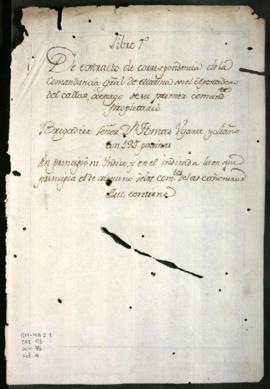 Libro 1º
De extracto de correspondencia de la
Comandancia Gral de Marina en el Apostadero
del Callao, a cargo de su primer comandte
propietario
Brigadier Señor Dn Tomas Ugarte y Liaño
con 595 paginas
principio su Indice, y en el indicado la en que
principia el de cada uno de los comtes de las cañoneras
que contiene